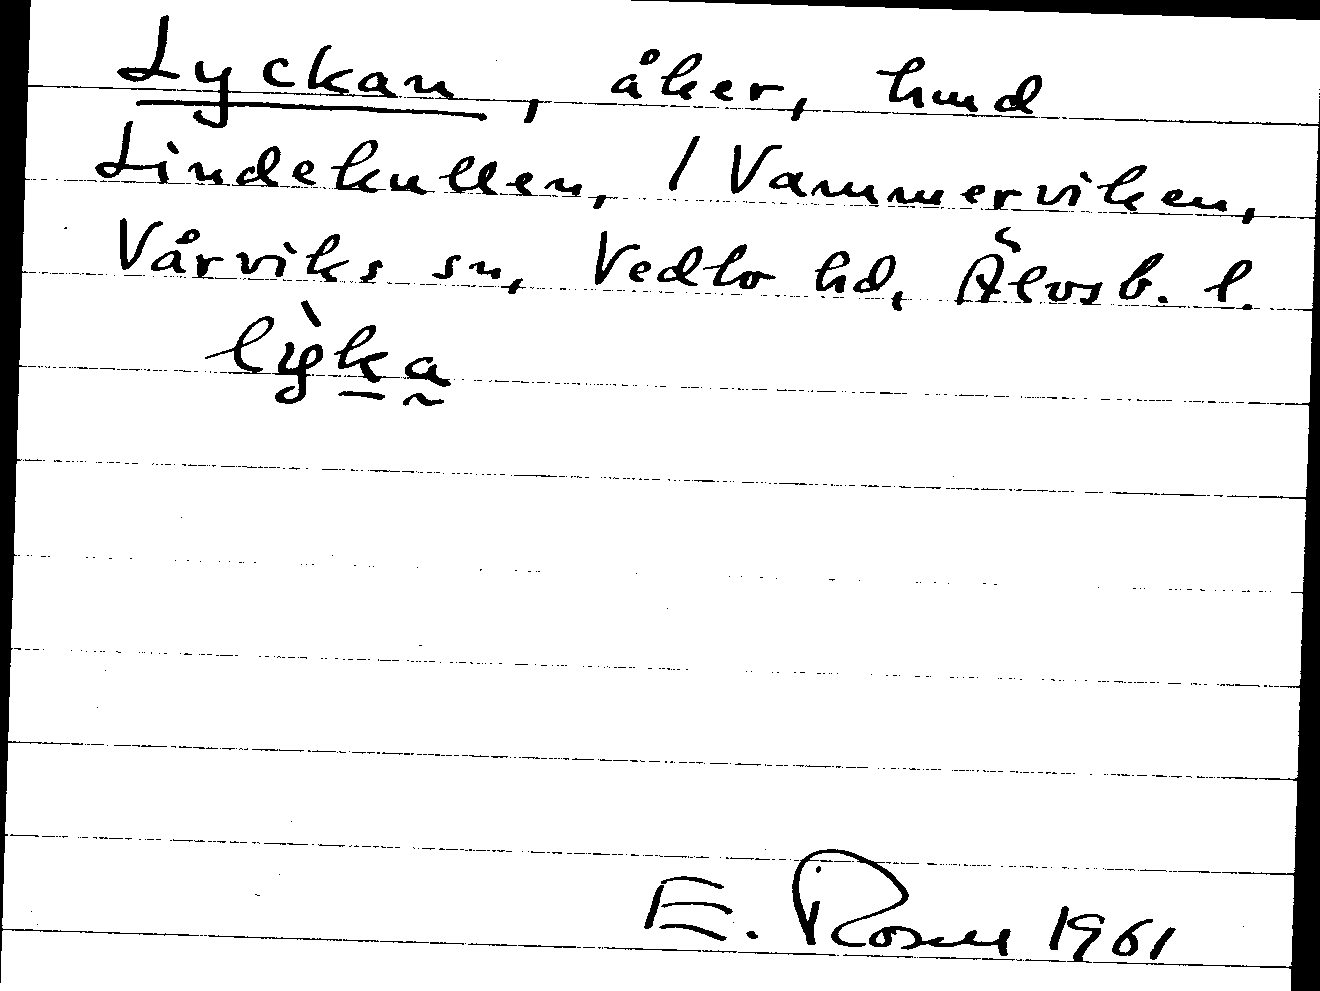 Lyckan, åker, hmd
Lindekullen, 1 Vammerviken,
Vårviks sn, Vedbo hd, Älvsb. l.
lỳka
E. Rosell 1961